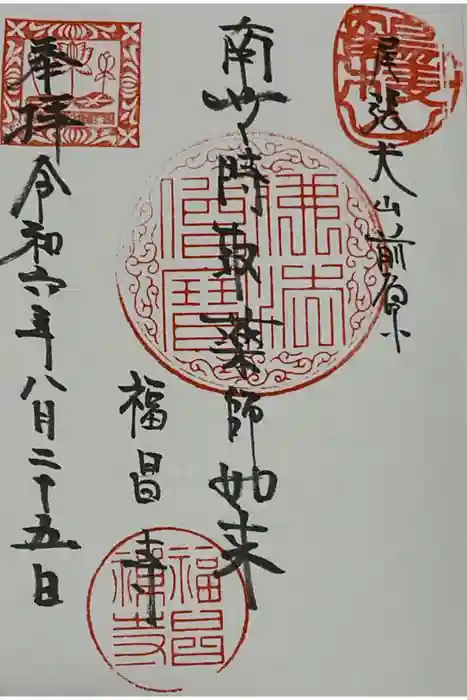 尾張犬山前原
南無時最薬師如来
福昌寺
奉拝令和六年八月二十五日
佛法僧寳
福昌禅寺